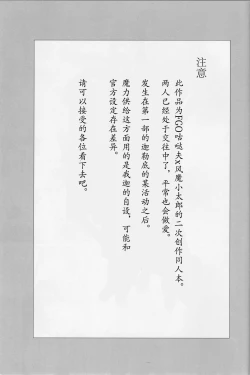 注意
此作品为FGO咕哒夫x风魔小太郎的二次创作同人本。
两人已经处于交往中了,平常也会做爱。
发生在第一部的迦勒底的某活动之后。
魔力供给这方面用的是我迦的自设,可能和
官方设定存在差异。
请可以接受的各位看下去吧。